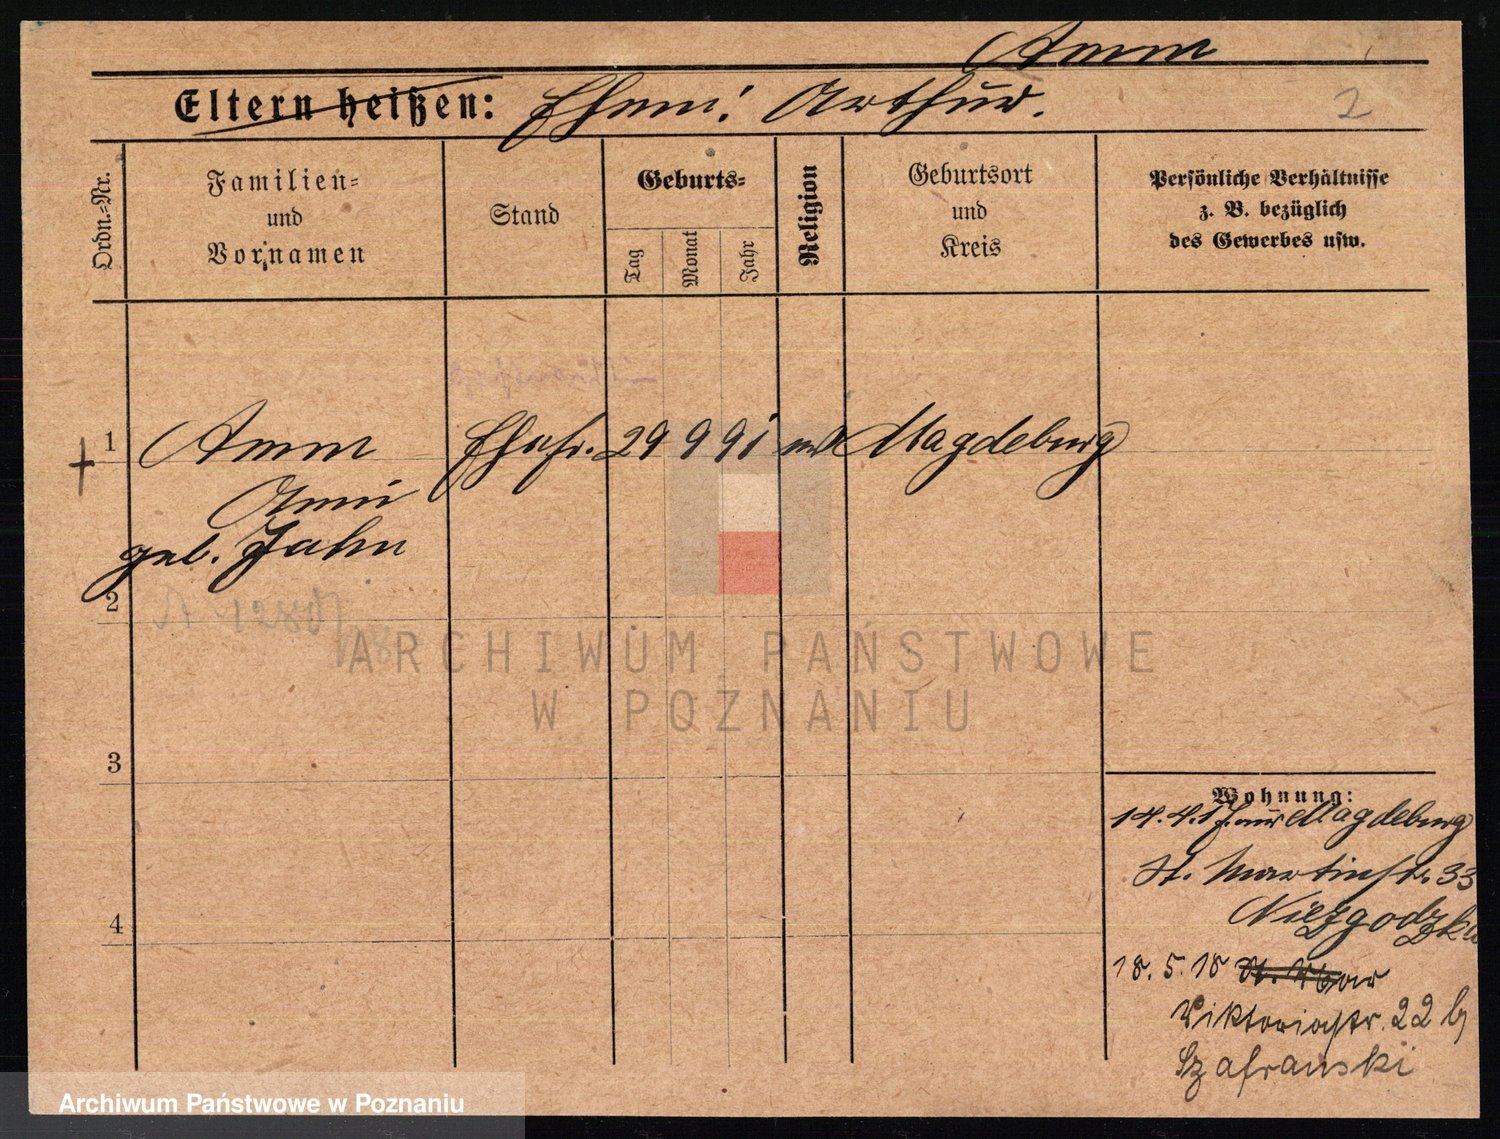 Amm
Eltern heißen: Ehem: Arthur.
2
Ordn.-Nr.
Familien-
und
Vornamen
Stand
Geburts-
Tag
Monat
Jahr
Religion
Geburtsort
und
Kreis
Persönliche Verhältnisse
z. B. bezüglich
des Gewerbes usw.
1 Amm Ehefr. 29 9 91 Magdeburg
Anni
geb. Jahn
2
3
4
ARCHIWUM PAŃSTWOWE
W POZNANIU
Wohnung:
14.4.17. aus Magdeburg
St. Martinstr. 33
Niezgodzka
18.5.18
Viktoriastr. 22 b
Szafranski
Archiwum Państwowe w Poznaniu